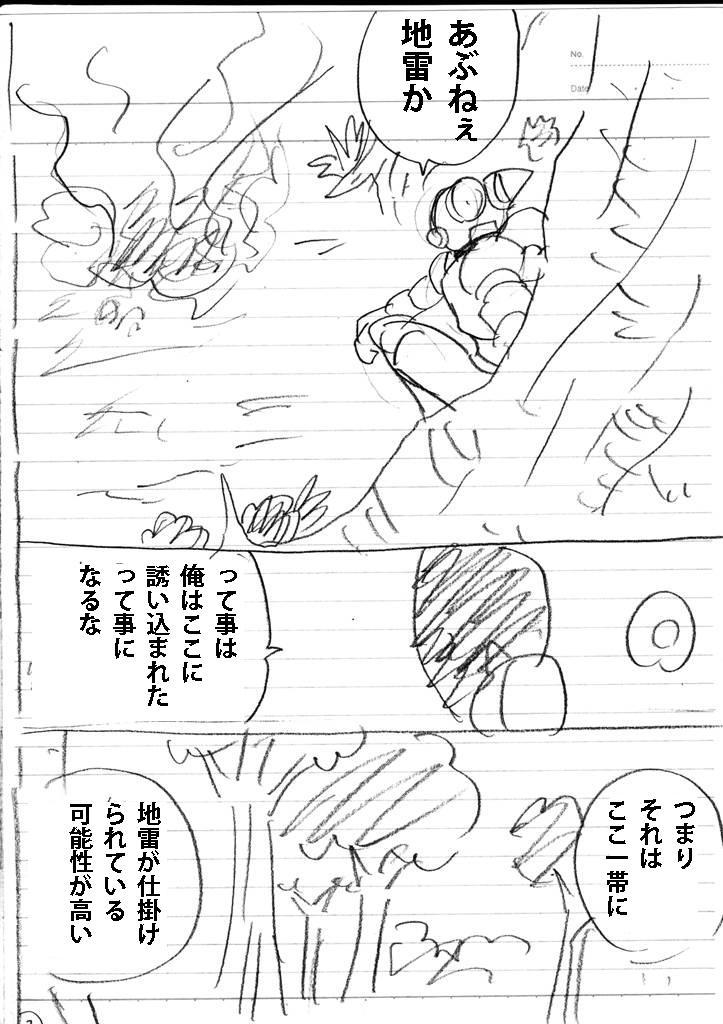 No.
Date
あぶねぇ
地雷か
って事は
俺はここに
誘い込まれた
って事に
なるな
つまり
それは
ここ一帯に
地雷が仕掛け
られている
可能性が高い